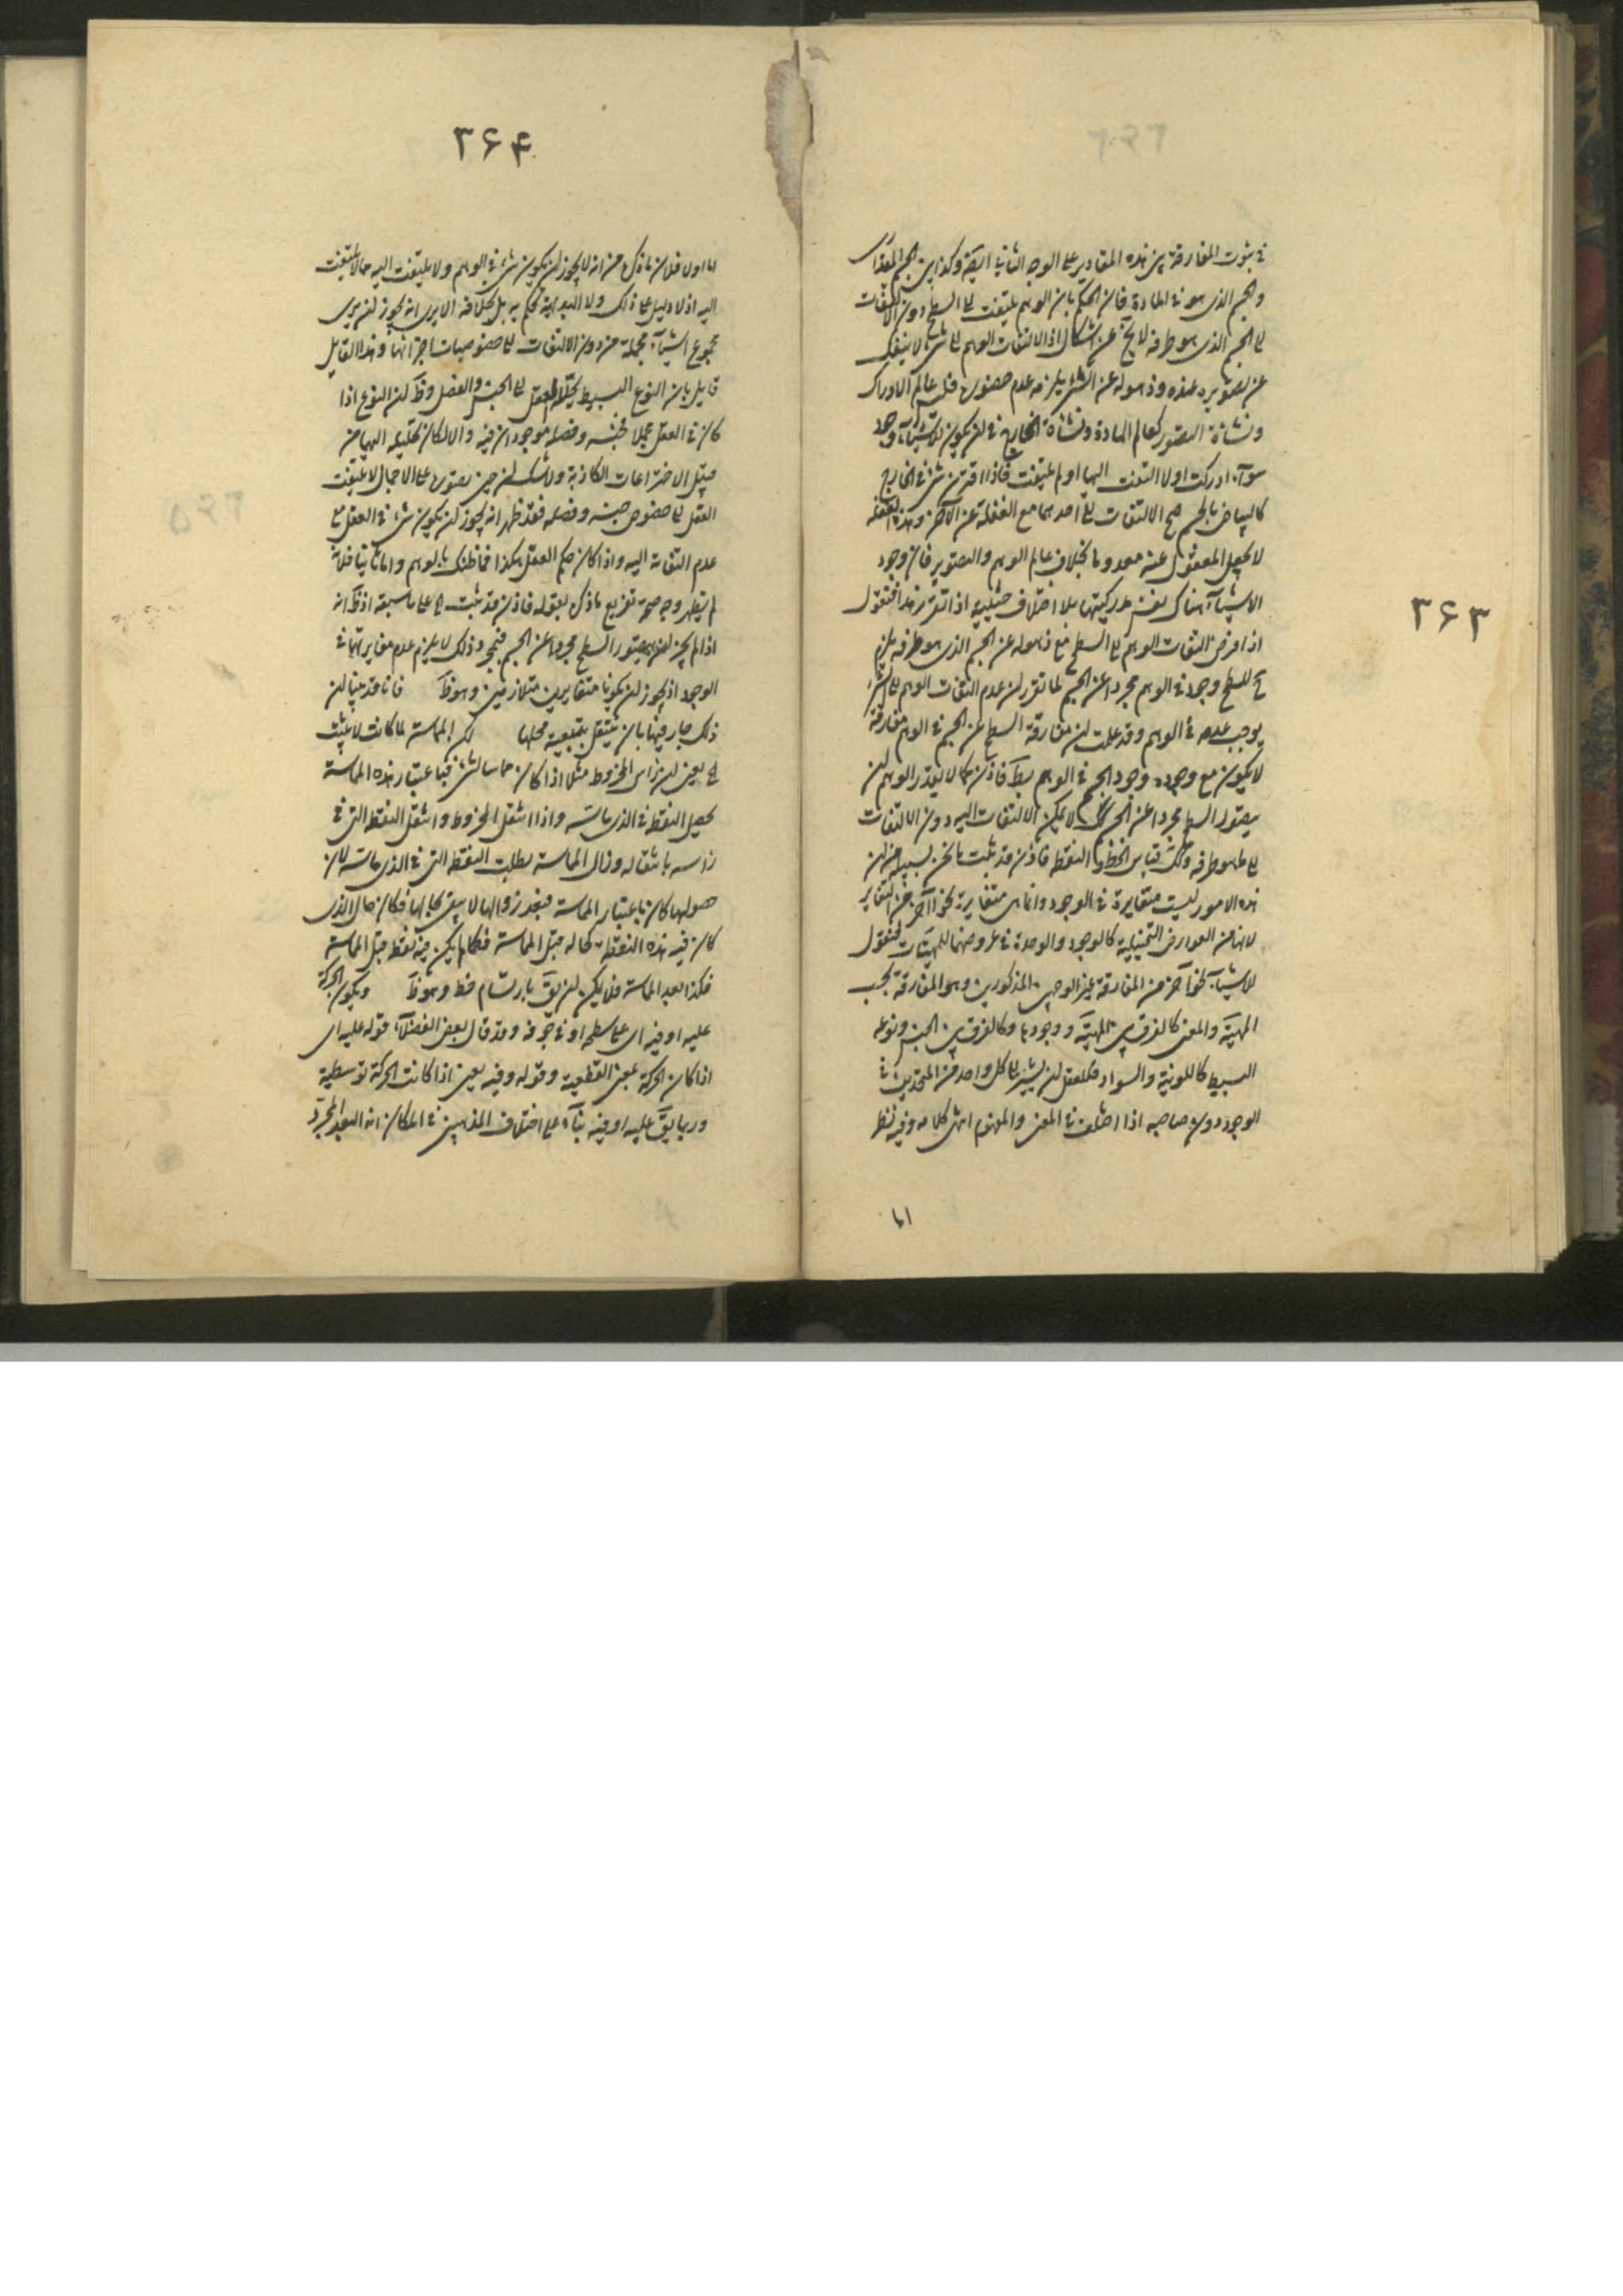 ۳۶۳
في ثبوت المفارقة بين هذه المقادير على الوجه الثاني ايضا وكذا بين الجسم المقداري
والجسم الذي هو في المادة فان الحكم بان الوهم يلتفت الى السطح دون الالتفات
الى الجسم الذي هو طرفه لا يخ عن اشكال اذ الالتفات الوهم الى شيء لا ينفك
عن تصويره عنده وذهوله عن الشيء يلزمه عدم حضوره فليس عالم الادراك
ونشأة التصور كعالم المادة ونشأة الخارج في ان يكون للاشياء وجود
سوآء ادركت اولا التفت اليها او لم يلتفت فاذا اقترن شيء في الخارج
كالبياض بالجسم صح الالتفات الى احدهما مع الغفلة عن الآخر وهذه الغفلة
لا يجعل المغفول عنه معدوما بخلاف عالم الوهم والتصوير فان وجود
الاشيآء هناك نفس مدركيتها بلا اختلاف حيثية اذا تقرر هذا فنقول
اذا فرض التفات الوهم الى السطح مع ذهوله عن الجسم الذي هو طرفه يلزم
ح للسطح وجود في الوهم مجردا عن الجسم لما تقرر ان عدم التفات الوهم الى الشيء
يوجب عدمه في الوهم وقد علمت ان مفارقة السطح عن الجسم في الوهم مفارقة
لا يكون مع وجوده وجود الجسم في الوهم بط فاذن كما لا يقدر الوهم ان
يتصور السطح مجردا عن الجسم كك لا يمكن الالتفات اليه دون الالتفات
الى ما هو طرفه وكك قياس الخط و النقطة فاذن قد ثبت ما نحن بسبيله من ان
هذه الامور ليست متغايرة في الوجود وانما هي متغايرة نحوا آخر من التغاير
لانها من العوارض التحليلية كالوجود والوحدة في عروضهما للمهيات فنقول
للاشيآء نحوآخر من المفارقة غير الوجهين المذكورين وهو المفارقة بحسب
المهية والمعنى كالفرق بين المهية ووجودها وكالفرق بين الجنس ونوعه
البسيط كاللونية والسواد فللعقل ان يشير الى كل واحد من المتحدين في
الوجود دون صاحبه اذا اختلف في المعنى والمفهوم انتهى كلامه وفيه نظر
اما
۳۶۴
اما اولا فلان ما ذكره من انه لا يجوز ان يكون شيء في الوهم ولا يلتفت اليه مما لا يلتفت
اليه اذ لا دليل على ذلك ولا البداهة يحكم به بل بخلافه الا يرى انه يجوز ان يرى
مجموع اشيآء مجملة من دون الالتفات الى خصوصيات اجزائها وهذا القايل
قايل بان النوع البسيط يحلله العقل الى الجنس والفصل وظ ان النوع اذا
كان في العقل مجملا فجنسه وفصله موجودان فيه والا لكان تحليله اليهما من
قبيل الاختراعات الكاذبة ولا شك ان حين تصوره على الاجمال لا يلتفت
العقل الى خصوص جنسه وفصله فقد ظهر انه يجوز ان يكون شيء في العقل مع
عدم التفاته اليه واذا كان حكم العقل هكذا فما ظنك بالوهم واما ثانيا فلانه
لم يظهر وجه صحة تفريع ما ذكره بقوله فاذن قد ثبت الخ على ما سبقه اذ ظ انه
اذا لم يجز للوهم تصور السطح مجردا عن الجسم فيجوز وذلك لا يلزم عدم مغايرتهما في
الوجود اذ يجوز ان يكونا متغايرين متلازمين وهو ظ فانا قد بينا ان
ذلك جار فيها بان ينتقل بتبعية محلها لكن المماسة لما كانت لا يثبت
الخ يعني ان رأس المخروط مثلا اذا كان مماسا لشيء فباعتبار هذه المماسة
يحصل النقطة في الذي ماسه واذا انتقل المخروط وانتقل النقطة التي في
رأسه بانتقاله وزال المماسة بطلت النقطة التي في الذي ماسته لان
حصولها كان باعتبار المماسة فبعد زوالها لا يبقى بحالها فكان حال الذي
كان فيه هذه النقطة كحاله قبل المماسة فكما لم يكن فيه نقطة قبل المماسة
فكذا بعد المماسة فلا يمكن ان يق بارتسام خط وهو ظ ويكون الحركة
عليه او فيه اي على سطحه او في جوفه وقد قال بعض الفضلآء قوله عليه اي
اذا كان الحركة بمعنى القطعية وقوله وفيه يعني اذا كانت الحركة توسطية
وربما يق عليه او فيه بنآء على اختلاف المذهبين في المكان انه البعد المجرد